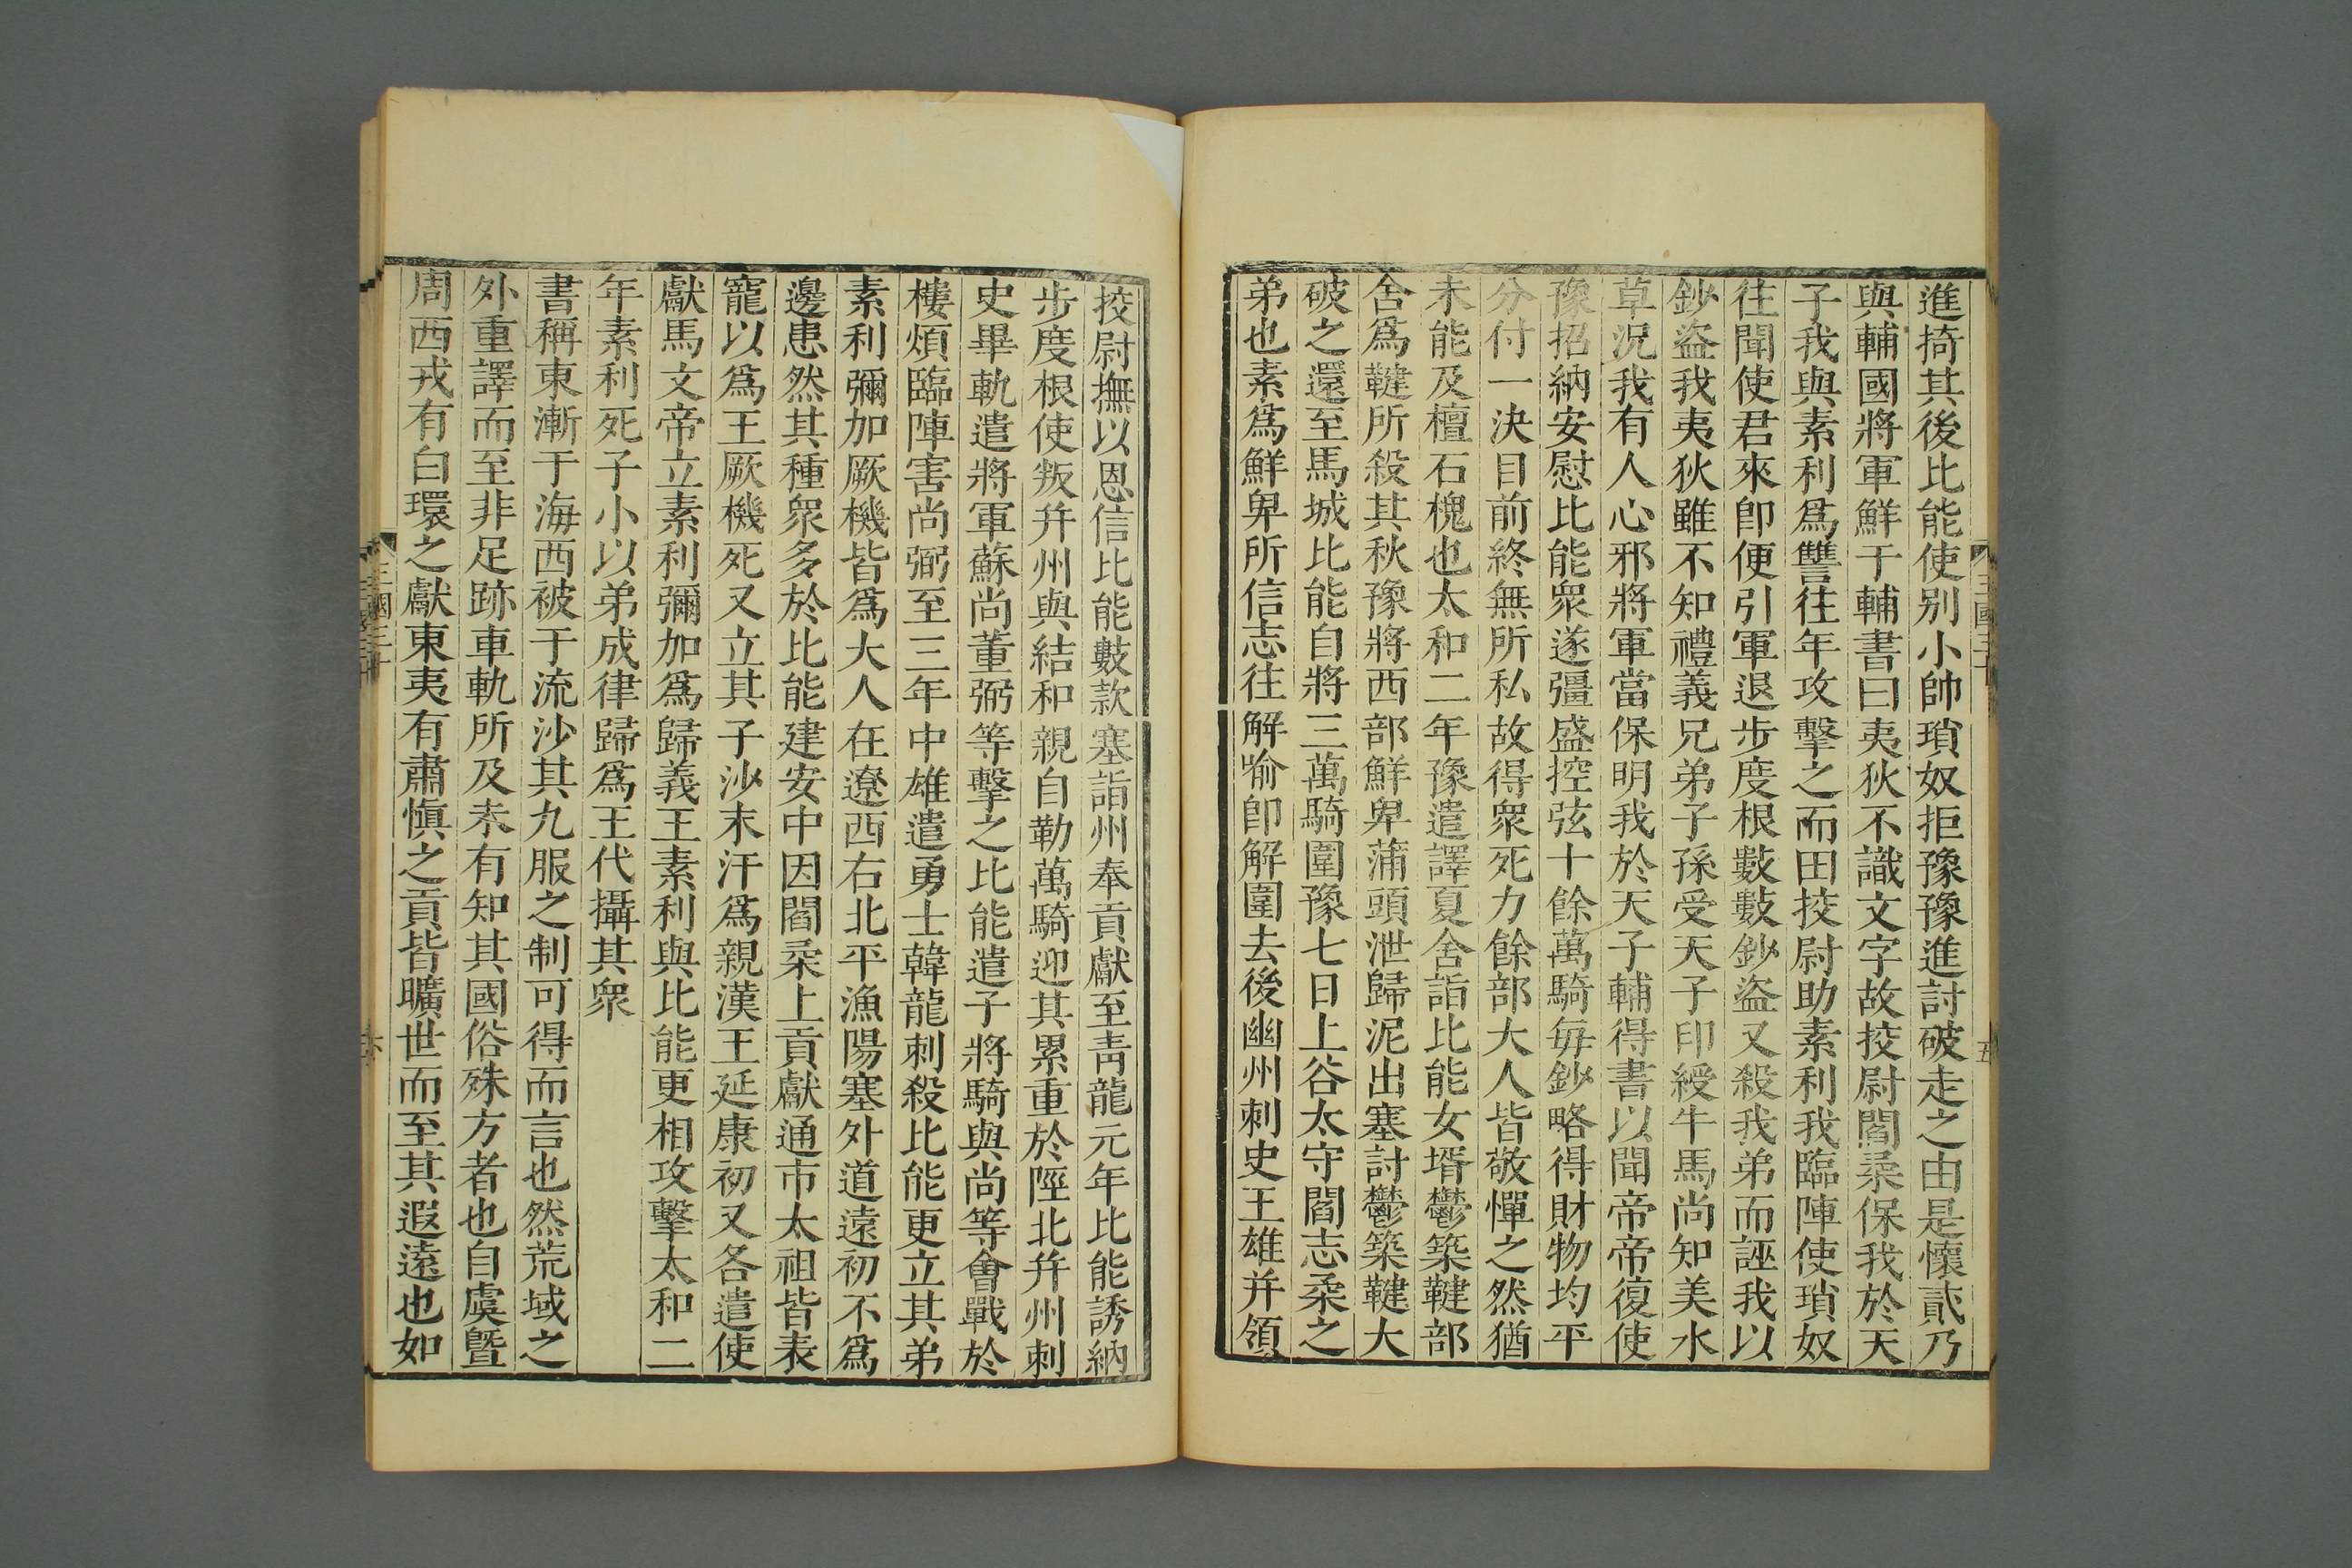 進掎其後比能使別小帥瑣奴拒豫豫進討破走之由是懷貳乃
與輔國將軍鮮于輔書曰夷狄不識文字故挍尉閻柔保我於天
子我與素利爲讐往年攻擊之而田挍尉助素利我臨陣使瑣奴
往聞使君來卽便引軍退步度根數數鈔盜又殺我弟而誣我以
鈔盜我夷狄雖不知禮義兄弟子孫受天子印綬牛馬尚知美水
草況我有人心邪將軍當保明我於天子輔得書以聞帝帝復使
豫招納安慰比能衆遂彊盛控弦十餘萬騎每鈔略得財物均平
分付一決目前終無所私故得衆死力餘部大人皆敬憚之然猶
未能及檀石槐也太和二年豫遣譯夏舍詣比能女壻鬱築鞬部
舍爲鞬所殺其秋豫將西部鮮卑蒲頭泄歸泥出塞討鬱築鞬大
破之還至馬城比能自將三萬騎圍豫七日上谷太守閻志柔之
弟也素爲鮮卑所信志往解喻卽解圍去後幽州刺史王雄并領
挍尉撫以恩信比能數款塞詣州奉貢獻至靑龍元年比能誘納
步度根使叛幷州與結和親自勒萬騎迎其累重於陘北幷州刺
史畢軌遣將軍蘇尚董弼等擊之比能遣子將騎與尚等會戰於
樓煩臨陣害尚弼至三年中雄遣勇士韓龍刺殺比能更立其弟
素利彌加厥機皆爲大人在遼西右北平漁陽塞外道遠初不爲
邊患然其種衆多於比能建安中因閻柔上貢獻通市太祖皆表
寵以爲王厥機死又立其子沙末汗爲親漢王延康初又各遣使
獻馬文帝立素利彌加爲歸義王素利與比能更相攻擊太和二
年素利死子小以弟成律歸爲王代攝其衆
書稱東漸于海西被于流沙其九服之制可得而言也然荒域之
外重譯而至非足跡車軌所及未有知其國俗殊方者也自虞曁
周西戎有白環之獻東夷有肅愼之貢皆曠世而至其遐遠也如
三國三十
五
三國三十
六